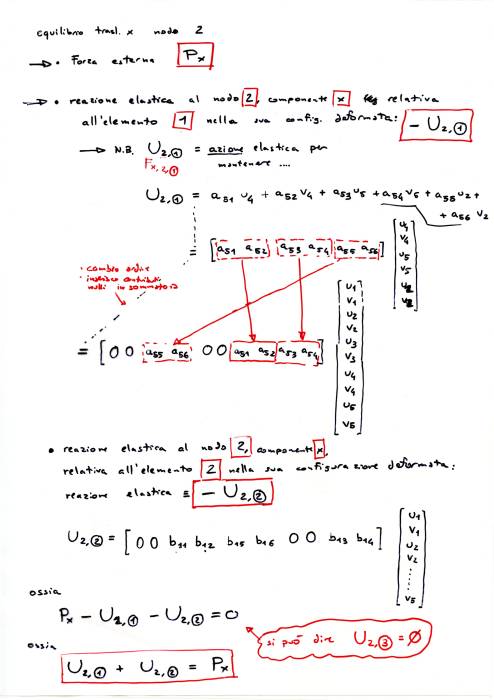 equilibrio trasl. x nodo 2
→ • Forza esterna Px
→ • reazione elastica al nodo 2, componente x relativa
all'elemento 1 nella sua config. deformata: - U2,①
→ N.B. U2,① = azione elastica per
Fx,2,① mantenere ....
U2,① = a51 u4 + a52 v4 + a53 u5 + a54 v5 + a55 u2 +
+ a56 v2
= [ a51 a52 a53 a54 a55 a56 ]
u4
v4
u5
v5
u2
v2
• cambio ordine
• inserisco contributi
nulli in sommatoria
= [ 0 0 a55 a56 0 0 a51 a52 a53 a54 ]
u1
v1
u2
v2
u3
v3
u4
v4
u5
v5
• reazione elastica al nodo 2, componente x,
relativa all'elemento 2 nella sua configurazione deformata:
reazione elastica ≡ - U2,②
U2,② = [ 0 0 b11 b12 b15 b16 0 0 b13 b14 ]
u1
v1
u2
v2
⋮
v5
ossia
Px - U2,① - U2,② = 0
si può dire U2,③ = ∅
ossia
U2,① + U2,② = Px